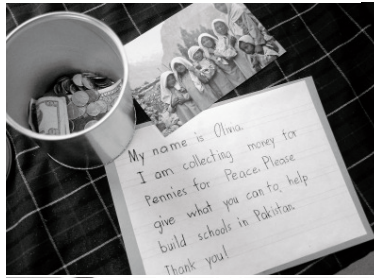 My name is Olivia.
I am collecting money for
Pennies for Peace. Please
give what you can to help
build schools in Pakistan.
Thank you!